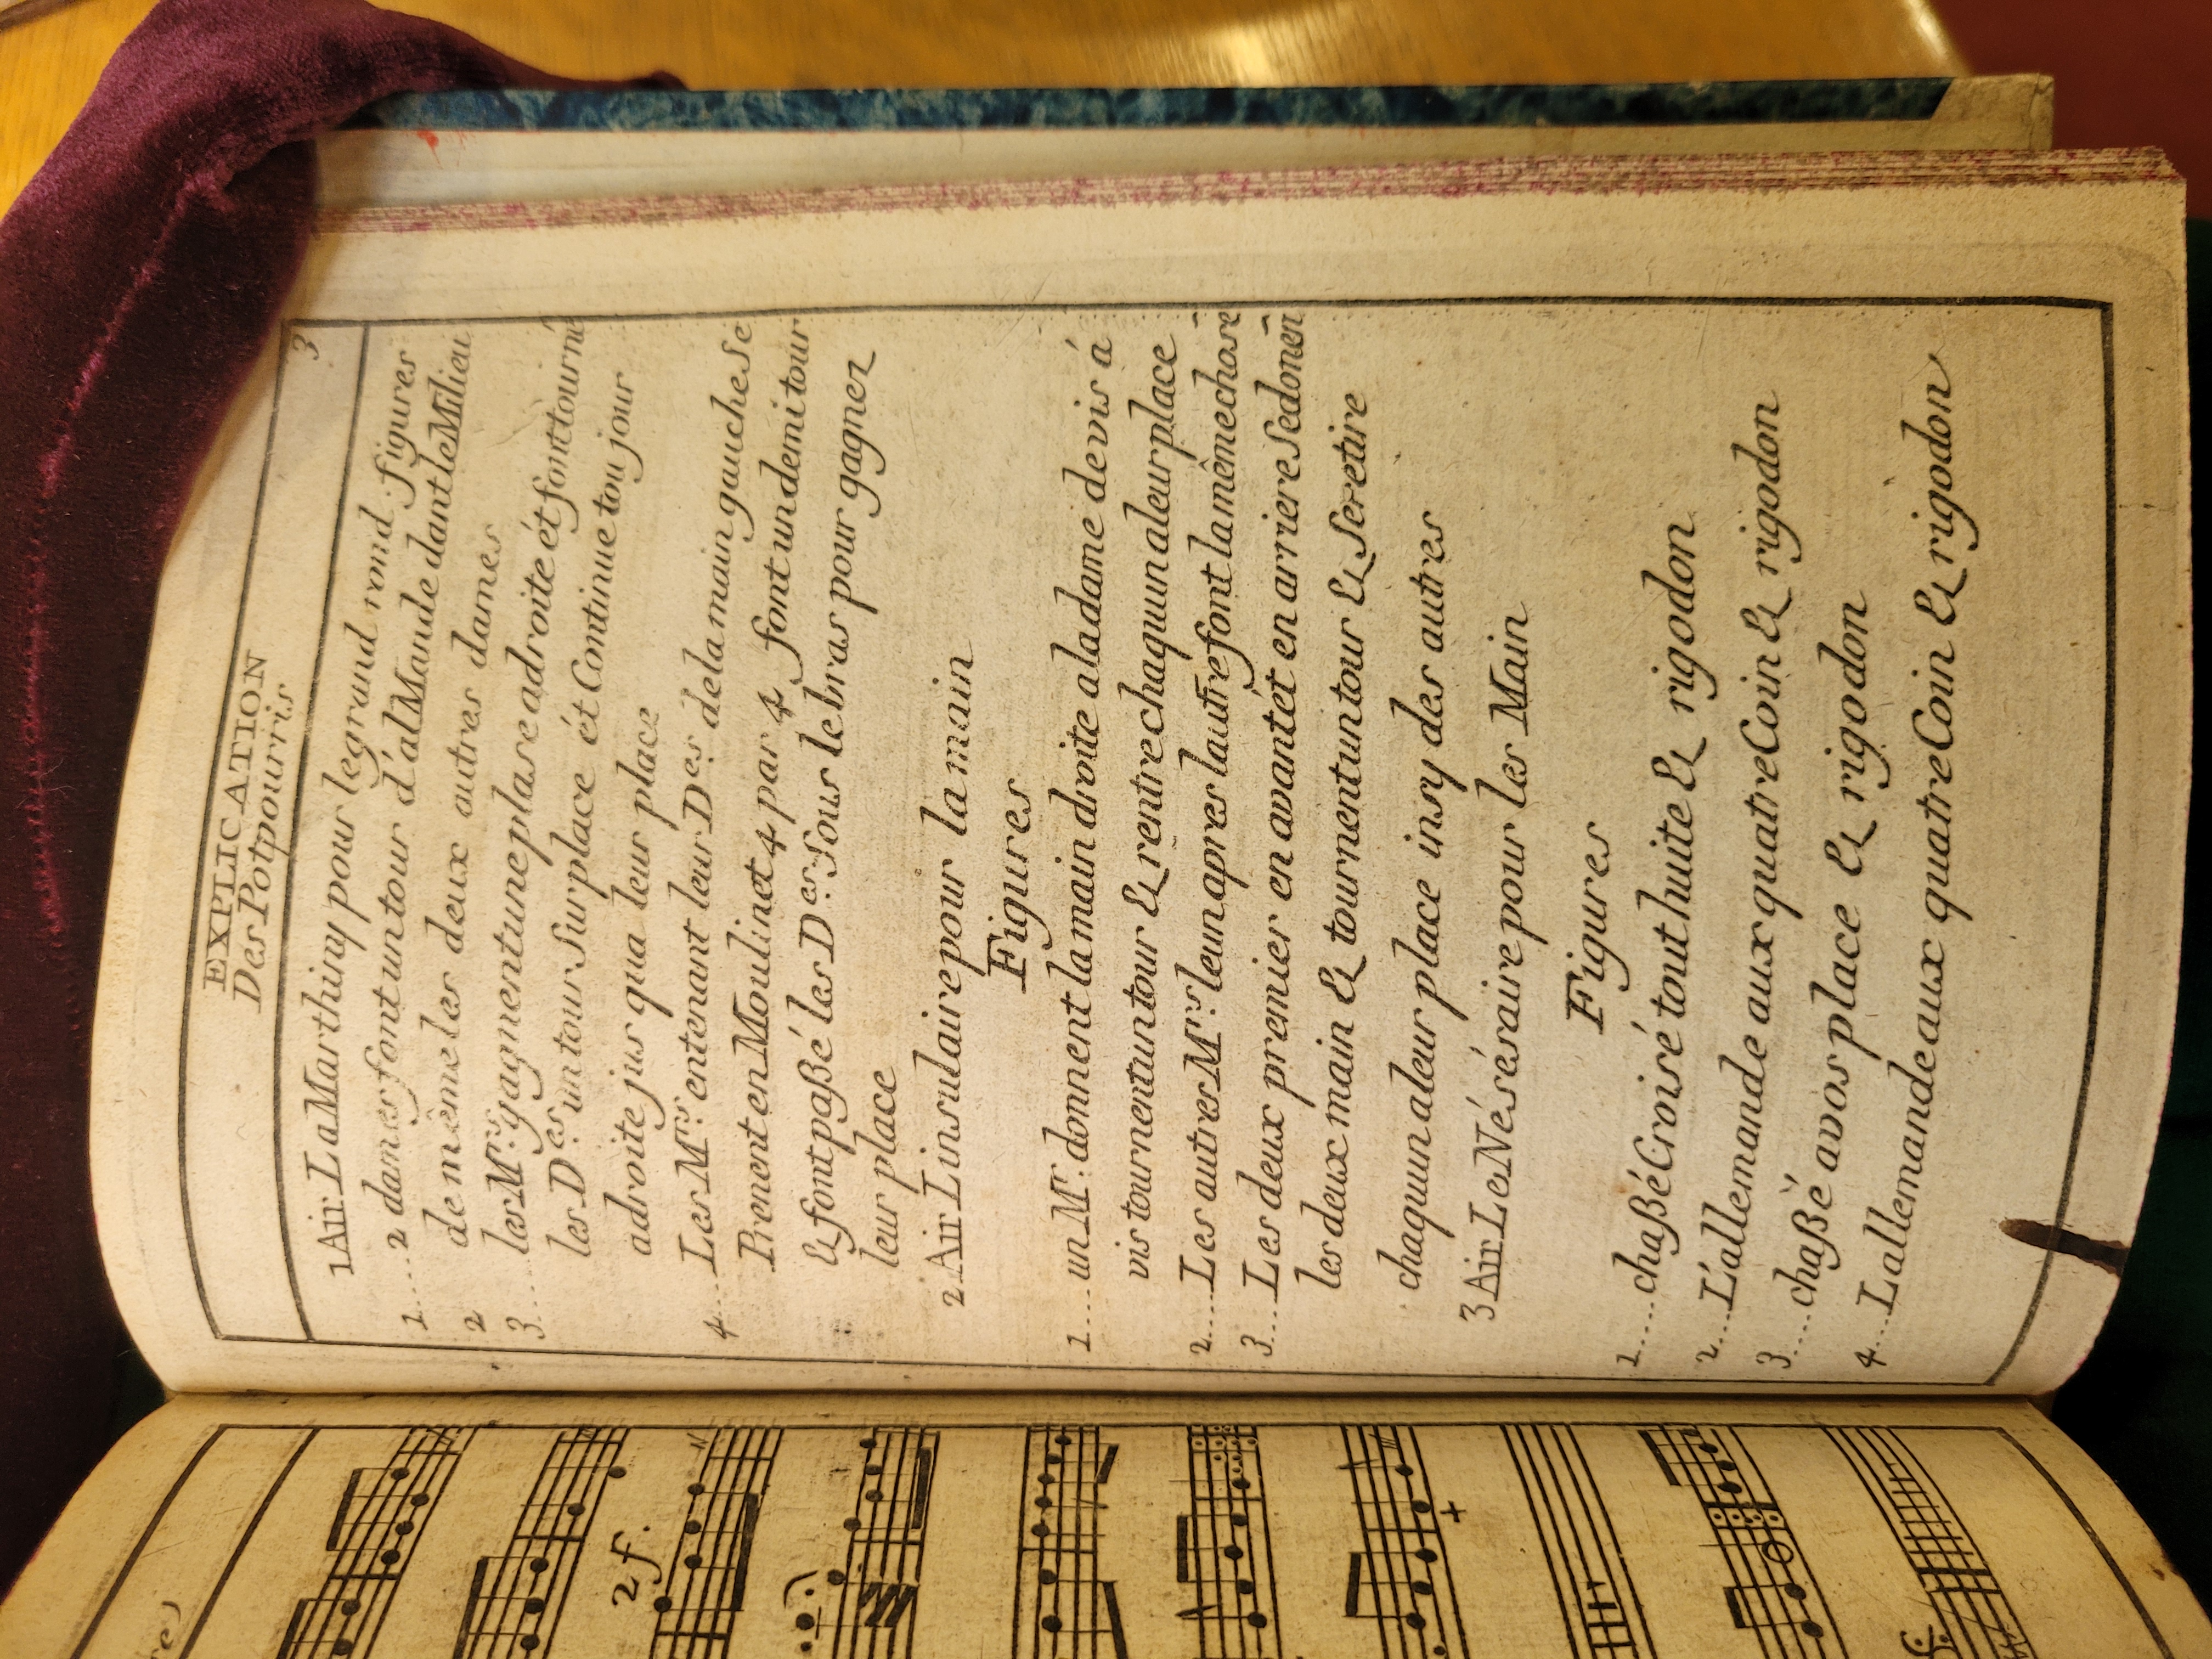 EXPLICATION
Des Potpourris
3
1 Air La Marthiny pour le grand rond figures
1.... 2 dames font un tour d'al Mande dant le Milieu
2 de même les deux autres dames
3... les Mrs. gagnent une plase adroite ét font tourné
les Des. un tour Sur place ét Continue tou jour
adroite jus qua leur place
4... Les Mrs. en tenant leur Des. de la main gauche Se
Prenent en Moulinet 4 par 4 font un demi tour
& font paßé les Des. Sous le bras pour gagner
leur place
2 Air L insulaire pour la main
Figures
1.... un Mr. donnent la main droite a la dame de vis á
vis tournent un tour & rentre chaquun a leur place
2.... Les autres Mrs. leun apres lautre font la même chose
3... Les deux premier en avantet en arriere Se donen
les deux main & tournent un tour & Se retire
chaquun a leur place insy des autres
3 Air Le Nésésaire pour les Main
Figures
1..... chaßé Croisé tout huite & rigodon
2.... L'allemande aux quatre Coin & rigodon
3.... chaßé avos place & rigodon
4.... Lallemande aux quatre Coin & rigodon
2 f.